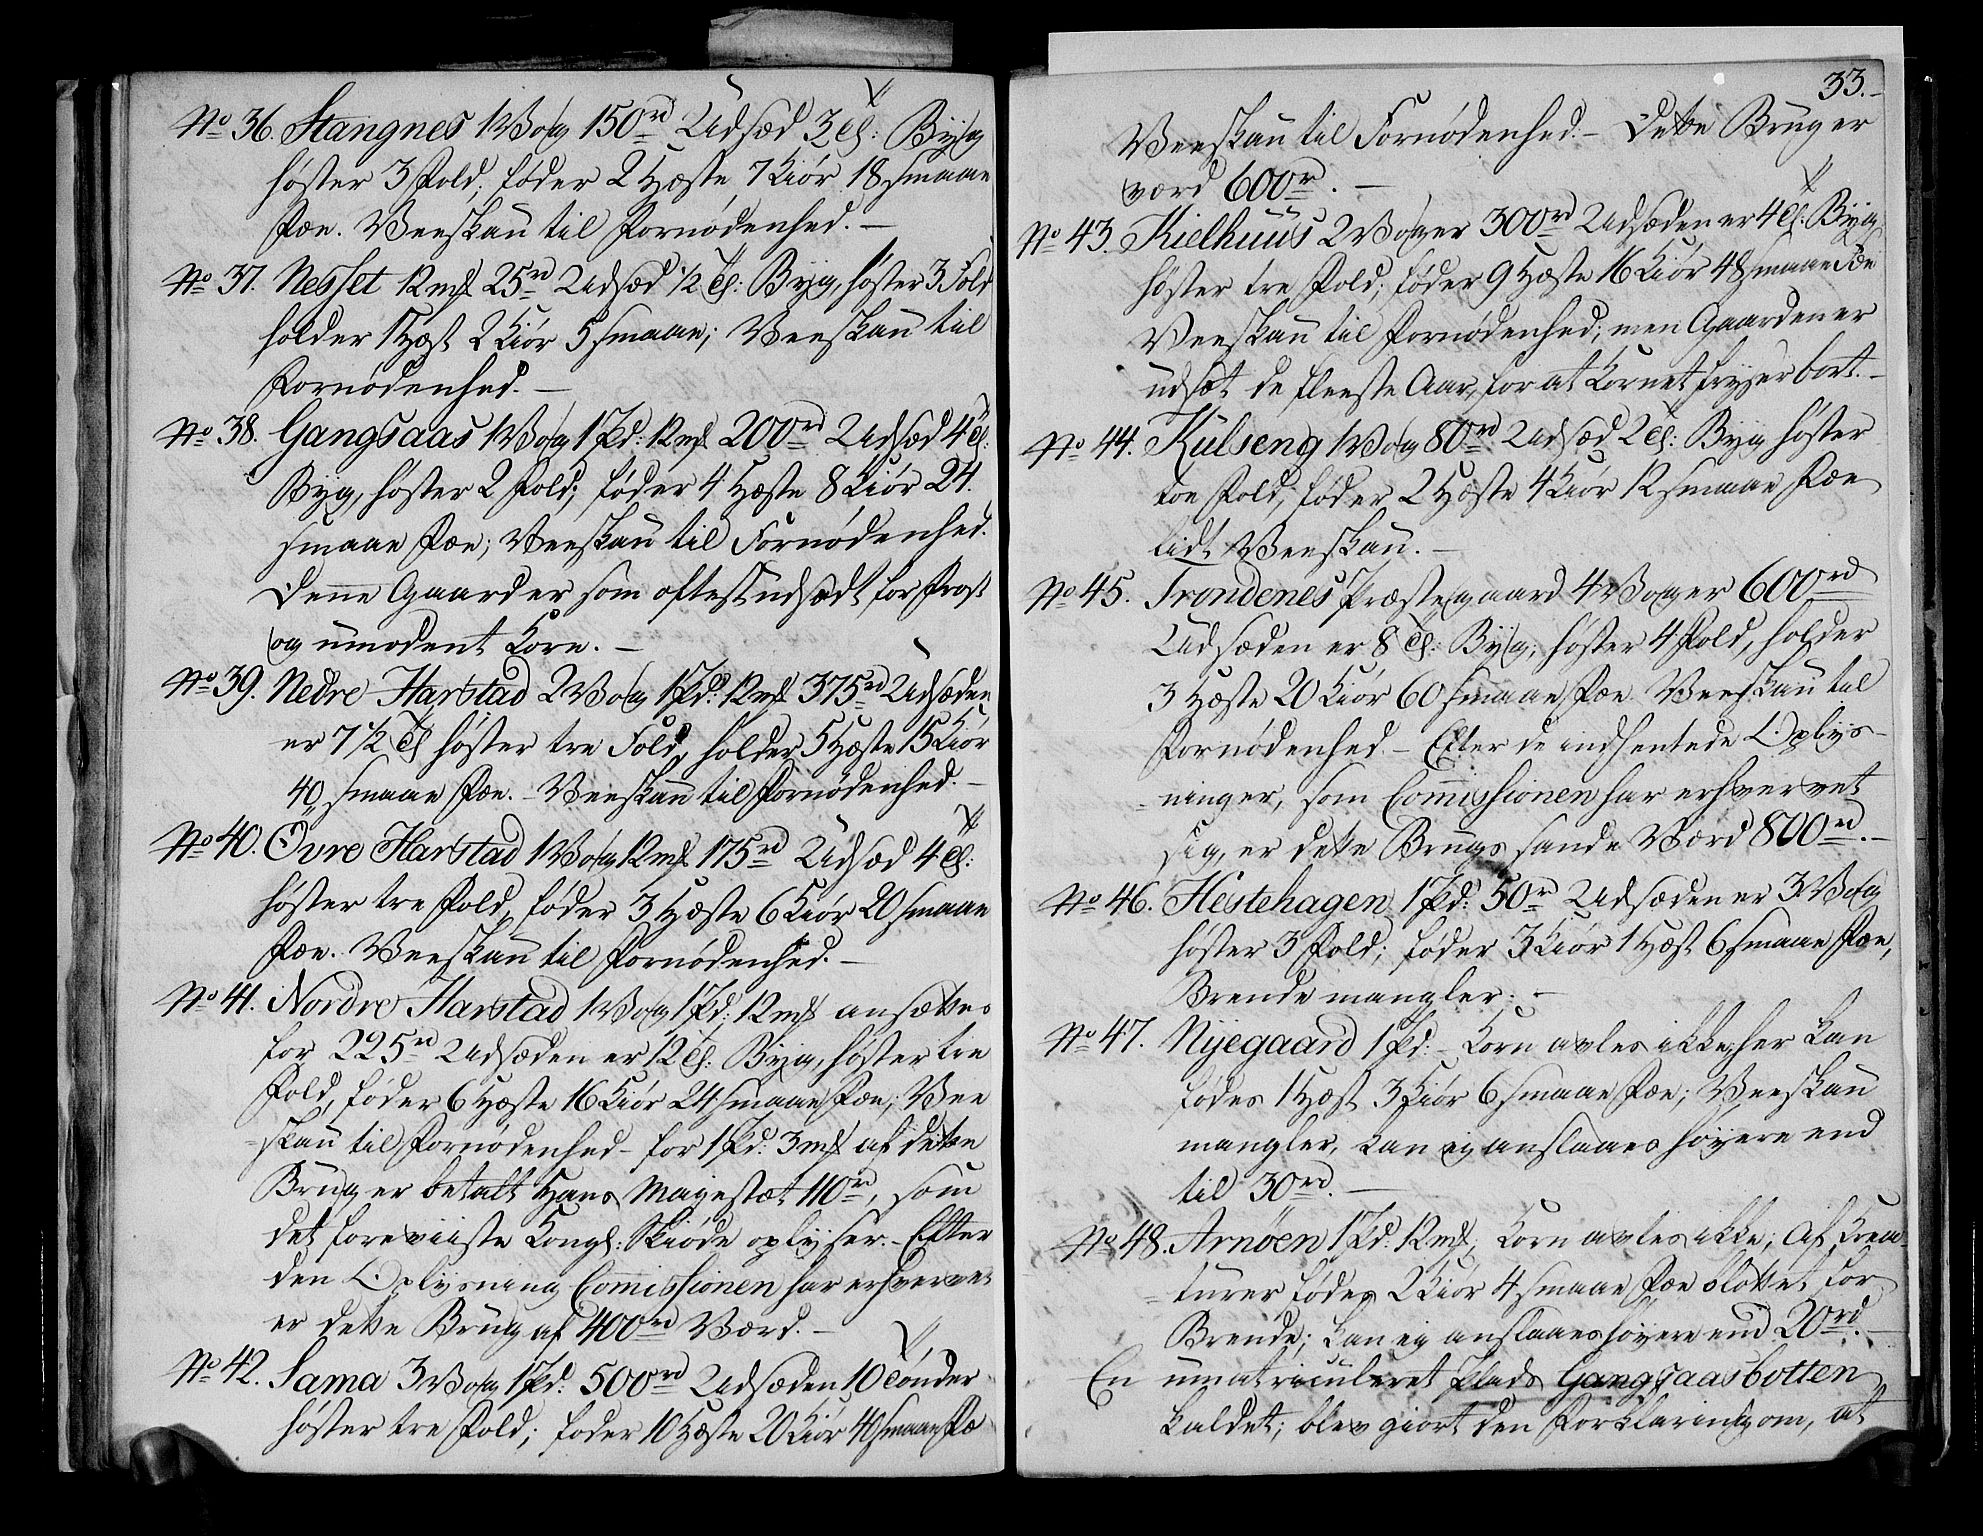 No 36. Stangnes 1 Vog 150rd Udsæd 3 Tl: Byg
høster 3 Fold; føder 2 Hæste 7 Kiør 18 smaae
Fæe. Veeskau til Fornødenhed. —
No 37. Nesset 12 mk 25rd Udsæd 1/2 Tl: Byg, høster 3 Fold
holder 1 Hæst 2 Kiør 5 smaae; Veeskau til
Fornødenhed. —
No 38. Gangsaas 1 Vog 1 Pd: 12 mk 200rd Udsæd 4 Tl:
Byg, høster 2 Fold; føder 4 Hæste 8 Kiør 24.
smaae Fæe; Veeskau til Fornødenhed.
Denne Gaard er som oftest udsædt for Frost
og umodent Korn. —
No 39. Nedre Harstad 2 Vog 1 Pd: 12 mk 375rd Udsæden
er 7 1/2 Tl høster tre Fold, holder 5 Hæste 15 Kiør
40 smaae Fæe. - Veeskau til Fornødenhed. —
No 40. Øvre Harstad 1 Vog 12 mk 175rd Udsæd 4 Tl:
høster tre Fold, føder 3 Hæste 6 Kiør 20 smaae
Fæe. Veeskau til Fornødenhed. —
No 41. Nordre Harstad 1 Vog 1 Pd: 12 mk ansættes
for 225rd Udsæden er 12 Tl: Byg, høster tre
Fold, føder 6 Hæste 16 Kiør 24 smaae Fæe; Vee
=skau til Fornødenhed - for 1 Pd: 3 mk af dette
Brug er betalt Hans Majestæt 110rd, som
det foreviiste Kongl: Skiøde oplyser. - Efter
den Oplysning Commissionen har erhvervet
er dette Brug af 400rd Værd. —
No 42. Sama 3 Vog 1 Pd: 500rd Udsæden 10 Tønder
høster tre Fold; føder 10 Hæste 20 Kiør 40 smaae Fæ
33.-
Veeskau til Fornødenhed. - Dette Brug er
værd 600rd. —
No 43. Kielhuus 2 Voger 300rd Udsæden er 4 Tl: Byg,
høster tre Fold; føder 9 Hæste 16 Kiør 48 smaae Fæe
Veeskau til Fornødenhed; men Gaarden er
udsat de fleeste Aar, for at Kornet fryser bort. —
No 44. Kulseng 1 Vog 80rd Udsæd 2 Tl: Byg høster
toe Fold; føder 2 Hæste 4 Kiør 12 smaae Fæe
lidt Veeskau. —
No 45. Trondenes Præstegaard 4 Voger 600rd
Udsæden er 8 Tl: Byg; høster 4 Fold, holder
3 Hæste 20 Kiør 60 smaae Fæe Veeskau til
Fornødenhed. - Efter de indhentede Oplys-
=ninger, som Commissionen har erhvervet
sig, er dette Brugs sande Værd 800rd. —
No 46. Hestehagen 1 Pd: 50rd Udsæden er 3 Vog
høster 3 Fold; føder 3 Kiør 1 Hæst 6 smaae Fæe,
Brende mangler. —
No 47. Nyegaard 1 Pd: - Korn avles ikke, her kan
fødes 1 Hæst 3 Kiør 6 smaae Fæe; Veeskau
mangler, kan ej anslaaes høyere end
til 30rd. —
No 48. Arnøen 1 Pd: 12 mk, Korn avles ikke; af Krea
=turer fødes 2 Kiør 4 smaae Fæe blottet for
Brende; kan ej anslaaes høyere end 20rd. —
En umatriculeret Plads Gangsaasbotten
kaldet; blev giort den Forklaring om, at